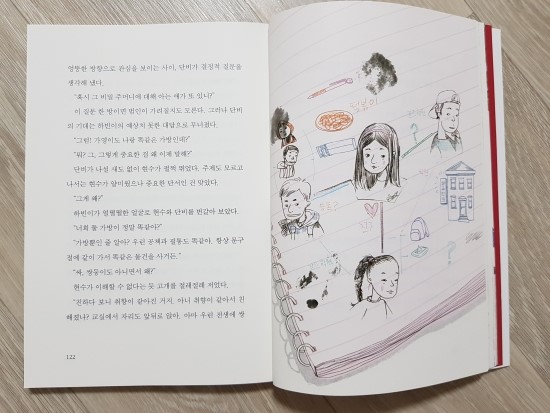 엉뚱한 방향으로 관심을 보이는 사이, 단비가 결정적 질문을
생각해 냈다.
"혹시 그 비밀 주머니에 대해 아는 애가 또 있니?"
이 질문 한 방이면 범인이 가려질지도 모른다. 그러나 단비
의 기대는 하빈이의 예상치 못한 대답으로 무너졌다.
"그럼! 가영이도 나랑 똑같은 가방인데?"
"뭐? 그, 그렇게 중요한 걸 왜 이제 말해?"
단비가 나설 새도 없이 현수가 펄쩍 뛰었다. 주제도 모르고
나서는 현수가 얄미웠으나 중요한 단서인 건 맞았다.
"그게 왜?"
하빈이가 얼떨떨한 얼굴로 현수와 단비를 번갈아 보았다.
"너희 둘 가방이 정말 똑같아?"
"가방뿐인 줄 알아? 우린 공책과 필통도 똑같아. 항상 문구
점에 같이 가서 똑같은 물건을 사거든."
"왜, 쌍둥이도 아니면서 왜?"
현수가 이해할 수 없다는 듯 고개를 절레절레 저었다.
"친하다 보니 취향이 같아진 거지, 아니 취향이 같아서 친
해졌나? 교실에서 자리도 앞뒤로 앉아. 아마 우린 전생에 쌍
122